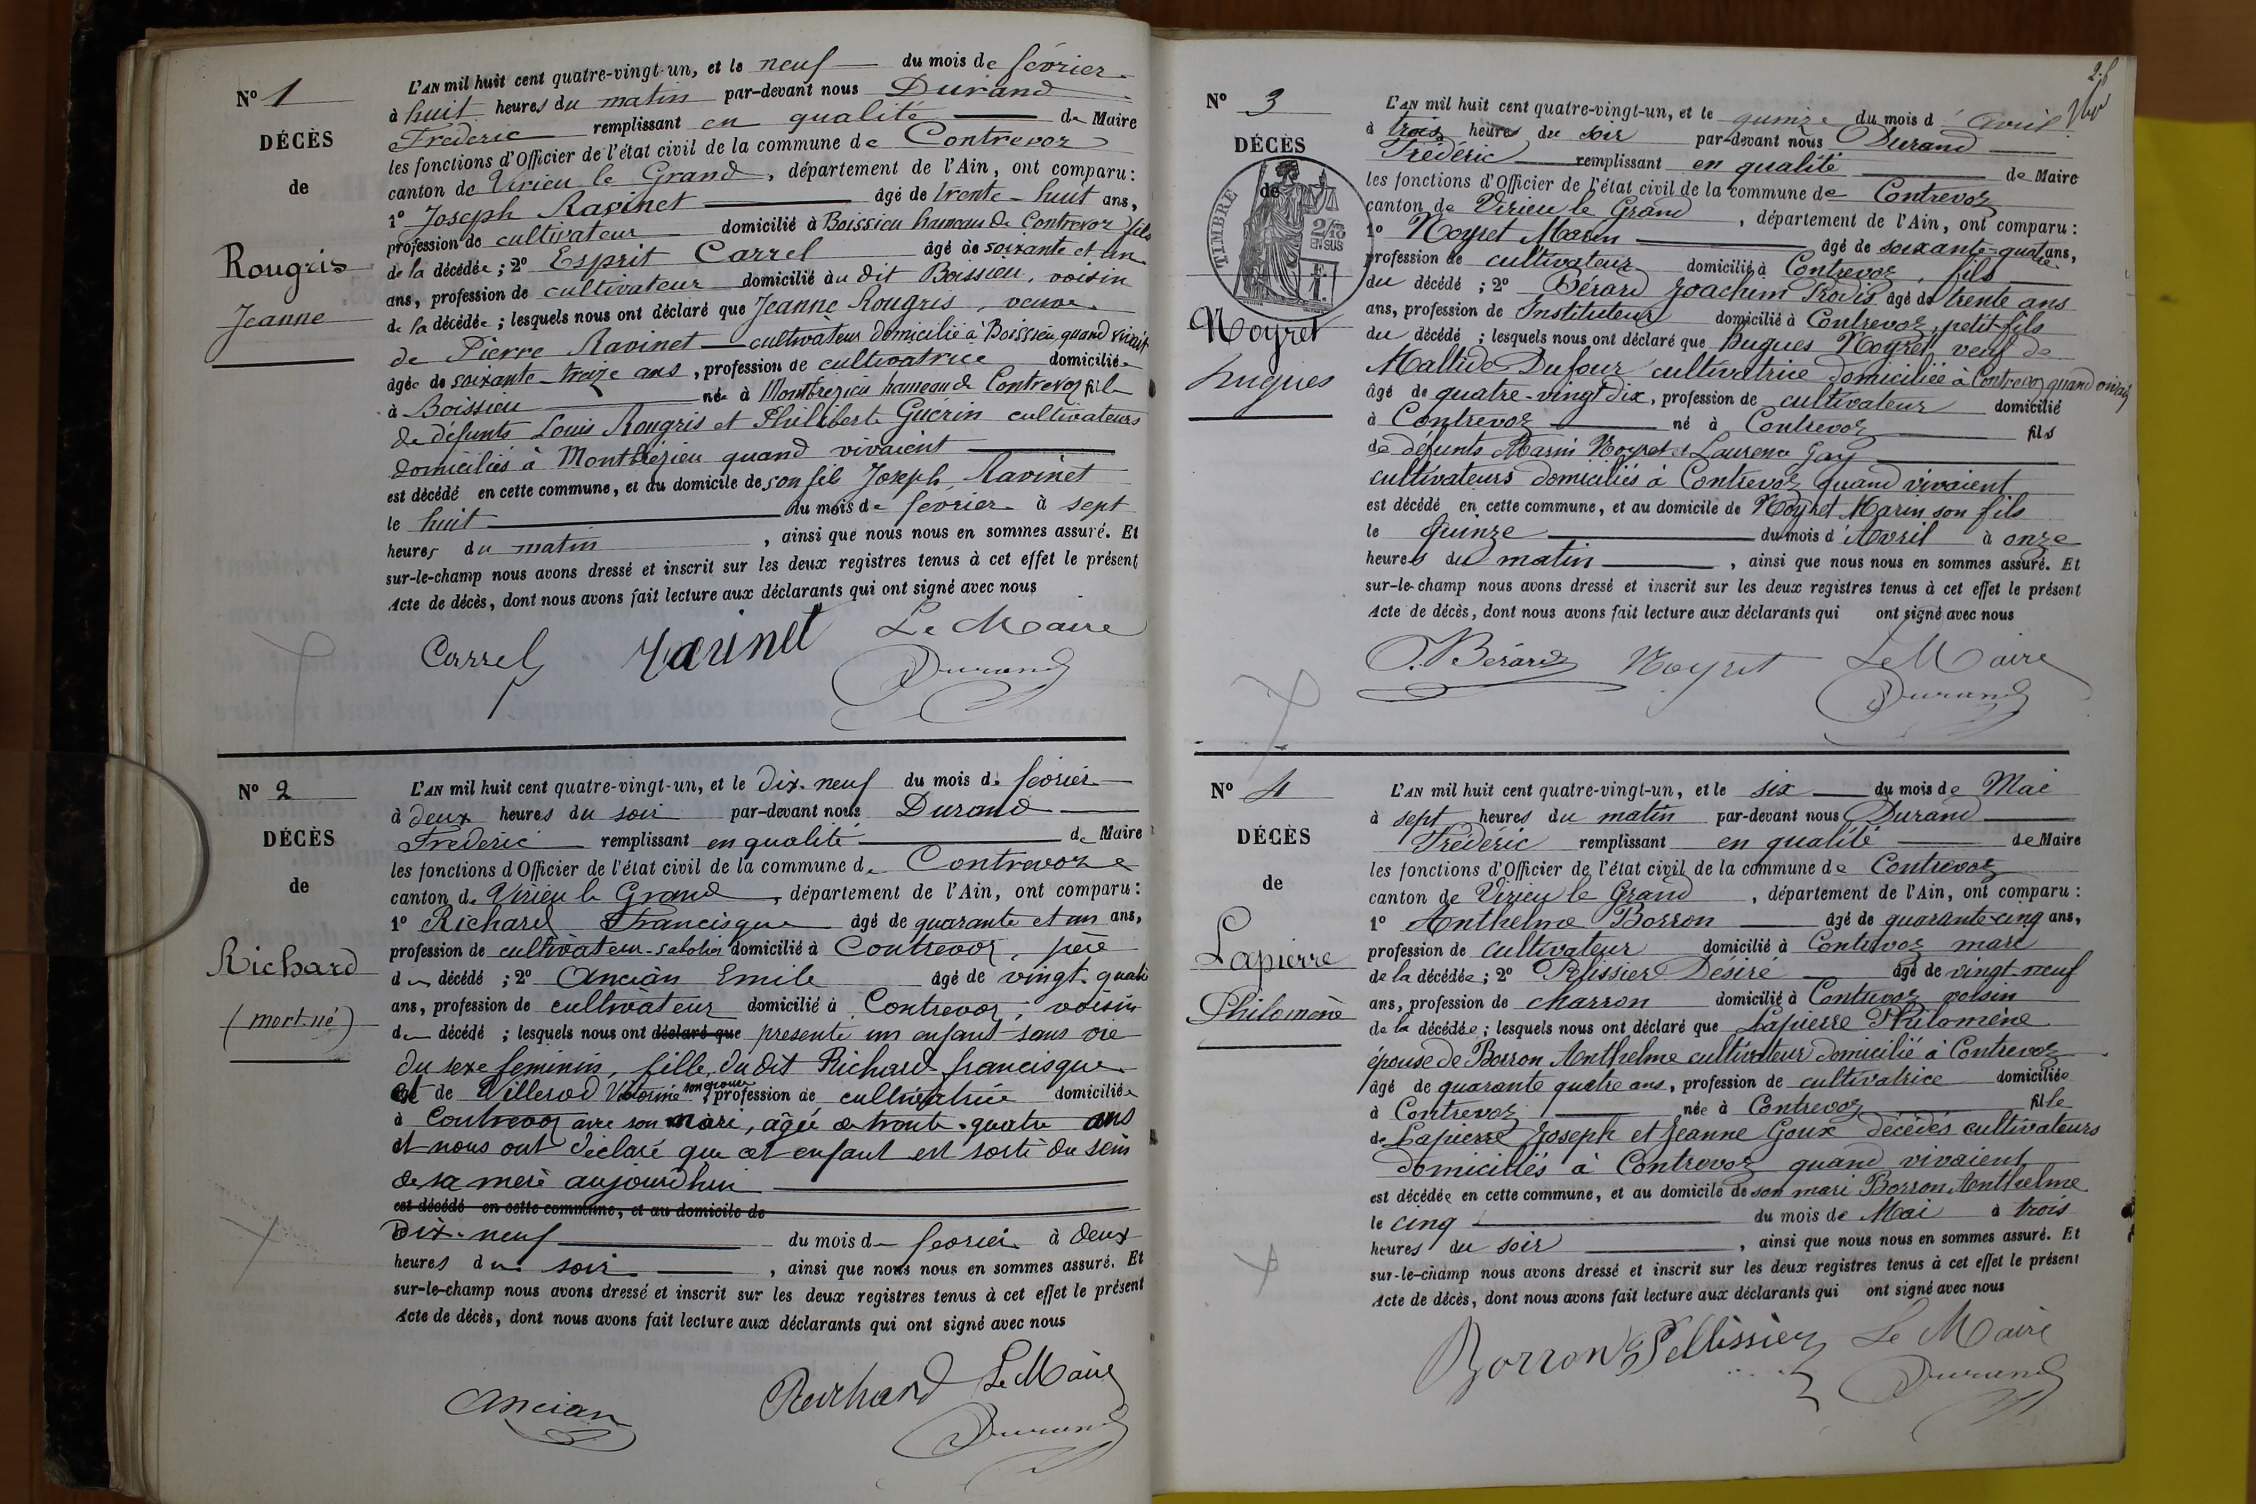 Nº 1
DÉCÈS
de
Rougris
Jeanne
L'AN mil huit cent quatre-vingt-un, et le neuf du mois de février
à huit heures du matin par-devant nous Durand
Fréderic remplissant en qualité de Maire
les fonctions d'Officier de l'état civil de la commune de Contrevoz
canton de Virieu le Grand, département de l'Ain, ont comparu :
1º Joseph Ravinet âgé de trente-huit ans,
profession de cultivateur domicilié à Boissieu hameau de Contrevoz fils
de la décédée ; 2º Esprit Carrel âgé de soixante et un
ans, profession de cultivateur domicilié au dit Boissieu, voisin
de la décédée ; lesquels nous ont déclaré que Jeanne Rougris, veuve
de Pierre Ravinet cultivateur domicilié à Boissieu quand vivait
âgée de soixante-treize ans, profession de cultivatrice domiciliée
à Boissieu née à Montbrézieu hameau de Contrevoz fille
de défunts Louis Rougris et Philiberte Guérin cultivateurs
domiciliés à Montbrézieu quand vivaient
est décédé en cette commune, et au domicile de son fils Joseph Ravinet
le huit du mois de février à sept
heures du matin, ainsi que nous nous en sommes assuré. Et
sur-le-champ nous avons dressé et inscrit sur les deux registres tenus à cet effet le présent
Acte de décès, dont nous avons fait lecture aux déclarants qui ont signé avec nous
Carrel Ravinet Le Maire
Durand
Nº 2
DÉCÈS
de
Richard
(mort-né)
L'AN mil huit cent quatre-vingt-un, et le dix-neuf du mois de février
à deux heures du soir par-devant nous Durand
Fréderic remplissant en qualité de Maire
les fonctions d'Officier de l'état civil de la commune de Contrevoz
canton de Virieu le Grand, département de l'Ain, ont comparu :
1º Richard Francisque âgé de quarante et un ans,
profession de cultivateur-sabotier domicilié à Contrevoz, père
du décédé ; 2º Ancian Emile âgé de vingt-quatre
ans, profession de cultivateur domicilié à Contrevoz, voisin
du décédé ; lesquels nous ont déclaré que presenté un enfant sans vie
du sexe feminin, fille du dit Richard francisque
et de Villerod Victorine son épouse, profession de cultivatrice domiciliée
à Contrevoz avec son mari, âgée de trente-quatre ans
et nous ont déclaré que cet enfant est sorti du sein
de sa mère aujourdhui
est décédé en cette commune, et au domicile de
Dix-neuf du mois de février à deux
heures du soir, ainsi que nous nous en sommes assuré. Et
sur-le-champ nous avons dressé et inscrit sur les deux registres tenus à cet effet le présent
Acte de décès, dont nous avons fait lecture aux déclarants qui ont signé avec nous
Ancian Richard Le Maire
Durand
Nº 3
DÉCÈS
de
TIMBRE
2/10
EN SUS
Noyret
Hugues
L'AN mil huit cent quatre-vingt-un, et le quinze du mois d'Avril
à trois heures du soir par-devant nous Durand
Frédéric remplissant en qualité de Maire
les fonctions d'Officier de l'état civil de la commune de Contrevoz
canton de Virieu le Grand, département de l'Ain, ont comparu :
1º Noyret Marin âgé de soixante-quatre ans,
profession de cultivateur domicilié à Contrevoz, fils
du décédé ; 2º Bérard Joachim âgé de trente ans
ans, profession de Instituteur domicilié à Contrevoz, petit-fils
du décédé ; lesquels nous ont déclaré que Hugues Noyret veuf de
Maltide Dufour cultivatrice domiciliée à Contrevoz quand vivait
âgé de quatre-vingt dix, profession de cultivateur domicilié
à Contrevoz né à Contrevoz fils
de défunts Marin Noyret et Laurence Gay
cultivateurs domiciliés à Contrevoz quand vivaient
est décédé en cette commune, et au domicile de Noyret Marin son fils
le Quinze du mois d'Avril à onze
heures du matin, ainsi que nous nous en sommes assuré. Et
sur-le-champ nous avons dressé et inscrit sur les deux registres tenus à cet effet le présent
Acte de décès, dont nous avons fait lecture aux déclarants qui ont signé avec nous
J. Bérard Noyret Le Maire
Durand
Nº 4
DÉCÈS
de
Lapierre
Philomène
L'AN mil huit cent quatre-vingt-un, et le six du mois de Mai
à sept heures du matin par-devant nous Durand
Frédéric remplissant en qualité de Maire
les fonctions d'Officier de l'état civil de la commune de Contrevoz
canton de Virieu le Grand, département de l'Ain, ont comparu :
1º Anthelme Borron âgé de quarante-cinq ans,
profession de cultivateur domicilié à Contrevoz mari
de la décédée ; 2º Pélissier Désiré âgé de vingt neuf
ans, profession de charron domicilié à Contrevoz voisin
de la décédée ; lesquels nous ont déclaré que Lapierre Philomène
épouse de Borron Anthelme cultivateur domicilié à Contrevoz
âgé de quarante quatre ans, profession de cultivatrice domiciliée
à Contrevoz née à Contrevoz fille
de Lapierre Joseph et Jeanne Goux décédés cultivateurs
domiciliés à Contrevoz quand vivaient
est décédée en cette commune, et au domicile de son mari Borron Anthelme
le cinq du mois de Mai à trois
heures du soir, ainsi que nous nous en sommes assuré. Et
sur-le-champ nous avons dressé et inscrit sur les deux registres tenus à cet effet le présent
Acte de décès, dont nous avons fait lecture aux déclarants qui ont signé avec nous
Borron Pellissier Le Maire
Durand